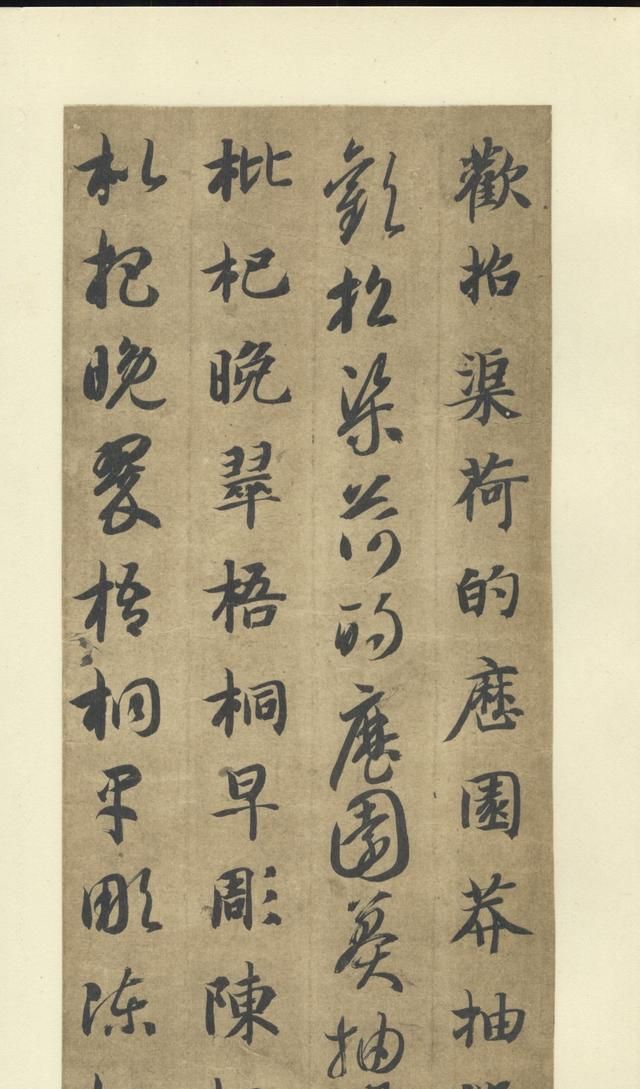 歡招渠荷的歷園莽抽
歡招渠荷的歷園莽抽
枇杷晚翠梧桐早彫陳
枇杷晚翠梧桐早彫陳